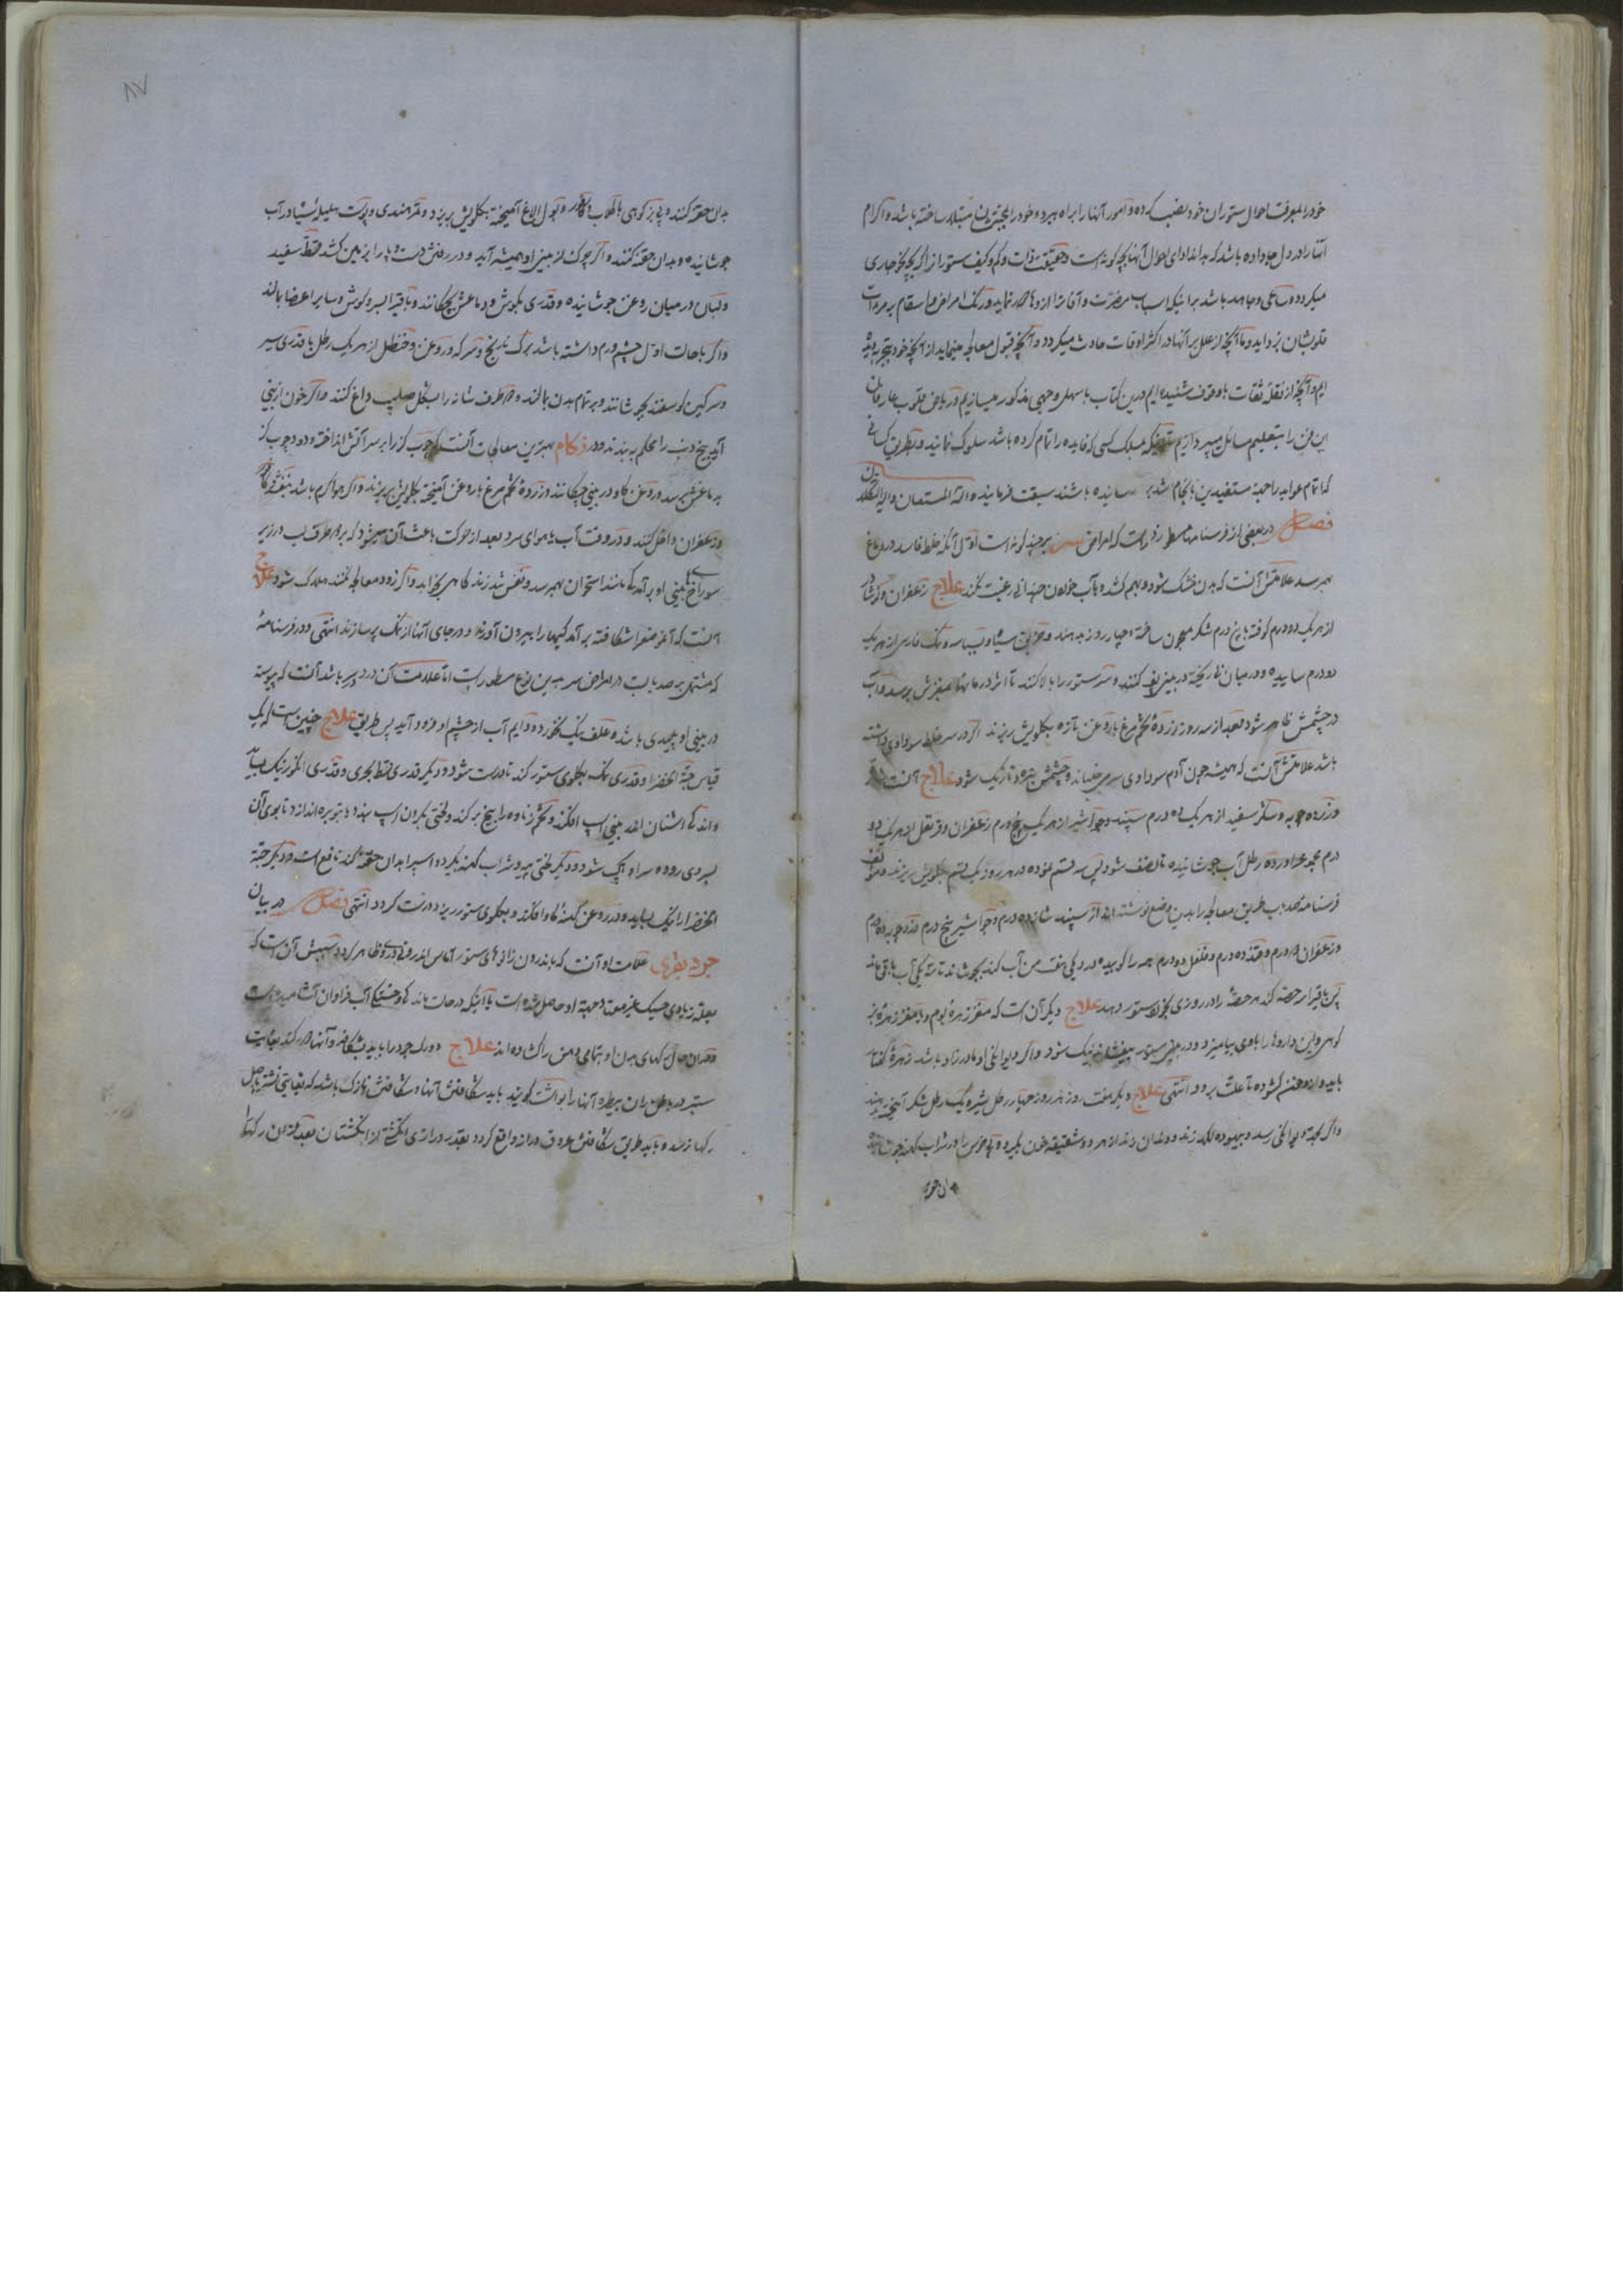 خود را بمعرفت احوال ستوران خود نصب کرده و امور آنها را براه ببرد و خود را بجنین مبتلا ساخته باشد و اکرام
آنها را در دل جا داده باشد که بداند ادای احوال آنها بچه کونه است و حقیقت ذات و کم و کیف ستور از اکر بچه نحو جاری
میکردد و ساعی و جاهد باشد بر اینکه اسباب مضرت و آفات را از وها نماید و رنک امراض و اسقام بر مرءات
قلوبشان بزداید و ما آنچه از علل بر آنها در اکثر اوقات حادث میکردد و آنچه قبول معالجه مینماید از آنچه خود بتجربه
ایم و آنچه از نقله ثقات با وقوف شنیده ایم درین کتاب باسهل وجهی مذکور میسازیم و ریاض قلوب عارفان
این فن را بتعلیم مسائل میپردازیم بمسلک کسی که فایده را تمام کرده باشد سلوک نمایند و بطریق کسانی
که اتمام عواید را جهة مستفیدین بانجام رسانیده باشند سبقت فرمایند والله المستعان والیه التکلان
فصل در بعضی از فرسنامها مسطور است که امراض سر بر چند کونه است اول آنکه خلط فاسد در دماغ
بهم رسد علامتش آنست که بدن خشک شود و بهم کشد و بآب خوردن چندانی رغبت نکند علاج زعفران و
از هر یک دو درم کوفته با پنج درم شکر معجون ساخته چهار روز بدهند و خربق سیاه و بسباسه و نمک فارسی از هر یک
دو درم ساییده و در میان نی ریخته در بینی کنند و سر ستور را بالا کنند تا اثر دارها بمغزش برسد و آب
در چشمش ظاهر شود بعد از سه روز زرده تخم مرغ با روغن تازه بکلویش ریزند اکر در سر خلط سوداوی داشته
باشد علامتش آنست که همیشه چون آدم سوداوی سر جنباند و چشمش خیره و تاریک شود علاج آنست
و زرده چوبه و شکر سفید از هر یک ده درم سپند و جواشیر از هر یک پنج درم زعفران و قرنفل از هر یک دو
درم مجموع را در ده رطل آب جوشانیده تا نصف شود پس سه قسم نموده در هر روز یک قسم بکلویش ریزند
فرسنامه صد باب طریق معالجه را بدین وضع نوشته اند از سپند شانزده درم و جواشیر پنج درم و زرد چوبه ده درم
و زعفران درم و قند ده درم و فلفل دو درم همه را کوبیده در دیکی هفت من آب کند بجوشاند تا سه یکی آب باقی ماند
پس باقی را سه حصه کند هر حصه را در روزی بخورد ستور دهد علاج دیکر آن است که مغز زهره بوم و یا مغز زهره بز
کوهی و این داروها را با وی بیامیزد و در بینی ستور بیفشاند نیک شود و اکر دیوانکی او مادرزاد باشد زهره کفتار
باید و از روغن کشوده تا علت برود انتهی علاج دیکر هفت روز هر روز چهار رطل شیر و یک رطل شکر آمیخته بدهند
و اکر بمرتبه دیوانکی رسد و بیهوده لکد زند و دندان زند از هر دو شقیقه خون بکیرد و پی خرس را در شراب کهنه جوشانیده
بدان حقنه کنند و پی بز کوهی با کلاب و کافور و بول الاغ آمیخته بکلویش بریزد و تمر هندی و پوست هلیله سیاه در آب
جوشانیده و بدان حقنه کنند و اکر چرک از بینی او همیشه آید و در رفتن دست و پا را بزمین کشد قسط سفید
و لبان در میان روغن جوشانیده و قدری بکوش و دماغش بچکانند و باقی را بسر و کوش و سایر اعضا بمالند
و اکر با حالت اول چشم ورم داشته باشد برک نارنج و سرکه و روغن و حنظل از هر یک رطل با قدری سیر
و سرکین کوسفند بجوشانند و بر تمام بدن بمالند و طرف شانه را بشکل صلیب داغ کنند و اکر خون از بینی
آید بیخ دنب را محکم به بندند و در زکام بهترین معالجات آنست که چوب کز را بر سر آتش انداخته و دود چوب کز
بدماغش برسد و روغن کاو در بینی چکانند و زرده تخم مرغ با روغن آمیخته بکلویش بریزند و اکر هوا کرم باشد بنفشه و کافور
و زعفران داخل کنند و در وقت آب یا هوای سرد بعد از حرکت باعث آن میشود که بر دو طرف لب در زیر
سوراخ بینی او برآمدکی مانند استخوان بهم رسد و نفس تند زند کاهی بخوابد و اکر زود معالجه نکنند هلاک شود علاج
آنست که آن موضع را شکافته برآمدکیها را بیرون آورند و در جای آنها از نمک پر سازند انتهی و در فرسنامه
که مشتمل بر صد بابست در امراض سر بدین نوع مسطور است اما علامت آن درد سر باشد آنست که پیوسته
در بینی او پلیدی باشد و علف نیک نخورد و دایم آب از چشم او فرود آید پس طریق علاج چنین است که یک
قیاس حبة الخضرا و قدری نمک بکلوی ستور کند تا درست شود و دیکر قدری قسط بحری و قدری انکوزنیک بساید
و اندکی اشنان اندر بینی اسپ افکند و تخم زناوه را بیخ برکند و لختی بکردن اسپ بندد و بتوبره اندازد تا بوی آن
بسر وی رود و سر او پاک شود و دیکر لختی پیه و شراب کهنه بکیرد و اسپ را بدان حقنه کند نافع است و دیکر حبة
الخضرا را نیک بساید و در روغن کهنه کاو افکند و بکلوی ستور ریزد درست کردد انتهی فصل در بیان
جرد بقری علامت او آنست که باندرون زانوهای ستور آماس اندرونی زرد ظاهر کردد سببش آن است که
بعلة زیادی خشیک غیر معتاد بجهة او حاصل شده است یا آنکه در حالت ماندکی و خستکی آب فراوان آشامیده است
و در آن حال رکهای بدن او بتمامی دهن را کشاده اند علاج دو رک جرد را باید بشکافد و آنها رها کند بغایت
ستبر در باطن ران بیطره آنها را بواشت کویند باید شکافتن آنها و شکافتنش نازک باشد که نهایتی نشتر باصل
رکها نرسد و باید طریق شکافتن عروق دراز واقع کردد بقدر درازی انکشتی از انکشتان بعد از آن رکها
بدان حقنه
۸۷